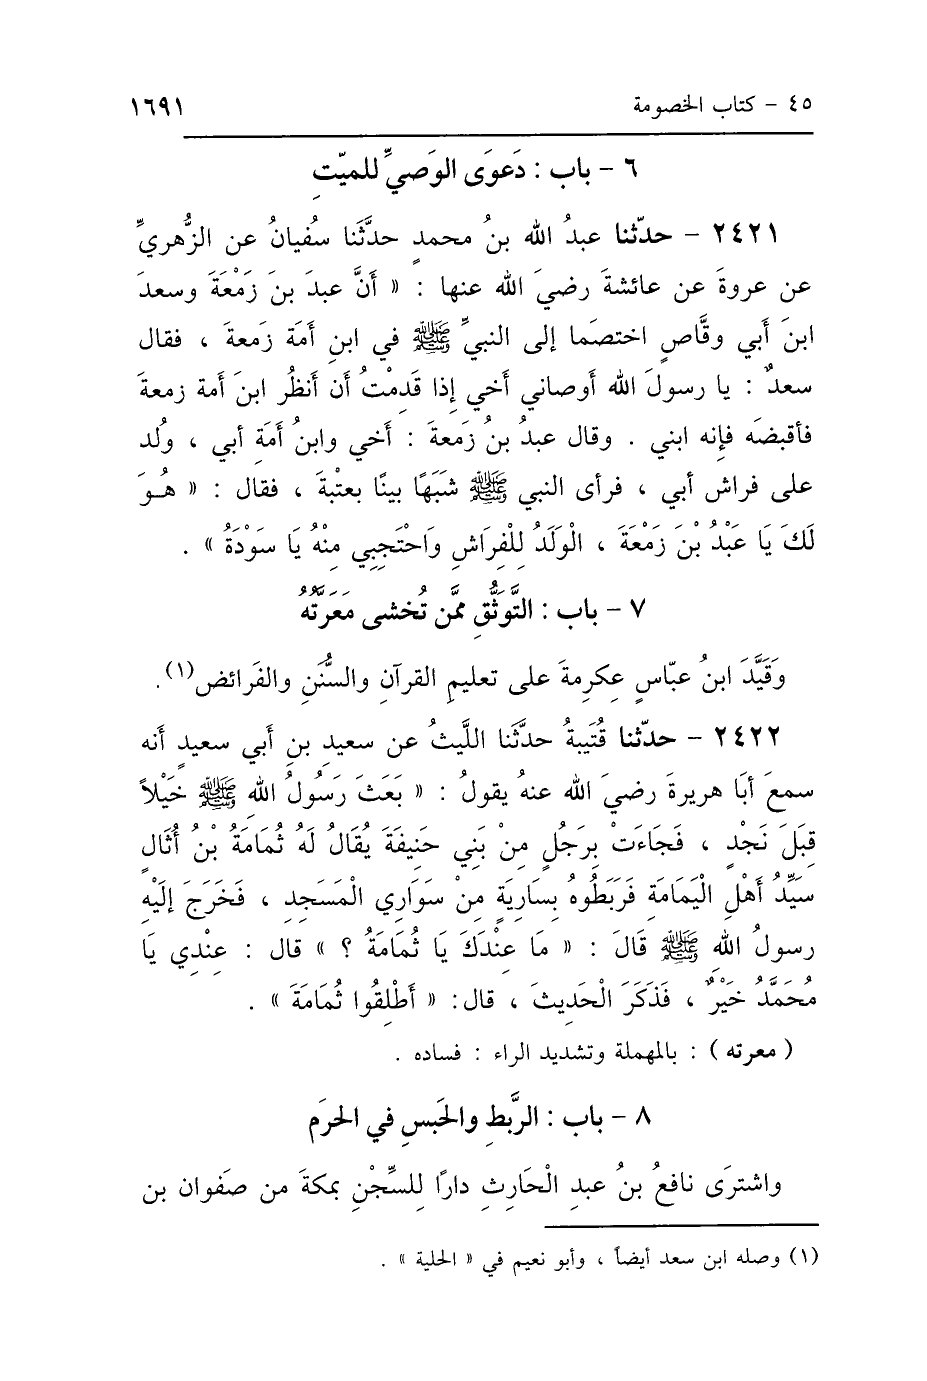 ٤٥ - كتاب الخصومة ١٦٩١
٦ - باب : دَعوَى الوَصيِّ للميّتِ
٢٤٢١ - حدّثنا عبدُ الله بنُ محمدٍ حدَّثَنا سفُيانُ عن الزُّهريِّ
عن عروةَ عن عائشةَ رضيَ الله عنها : « أَنَّ عبدَ بنَ زَمْعَةَ وسعدَ
ابنَ أَبي وقَّاصٍ اختصَما إلى النبيِّ ﷺ في ابنِ أَمَة زَمعةَ ، فقال
سعدٌ : يا رسولَ الله أَوصاني أَخي إذا قَدِمْتُ أَن أَنظُر ابنَ أمة زمعةَ
فأقبضَه فإنه ابني . وقال عبدُ بنُ زَمعةَ : أَخي وابنُ أَمَةِ أبي ، وُلد
على فراش أبي ، فرأى النبي ﷺ شَبَهًا بينًا بعتْبةَ ، فقال : « هُـوَ
لَكَ يَا عَبْدُ بْنَ زَمْعَةَ ، الْوَلَدُ لِلْفِرَاشِ وَاحْتَجِبِي مِنْهُ يَا سَوْدَةُ » .
٧ - باب : التَّوَثُّقِ ممَّن تُخشى مَعَرَتَّهُ
وَقَيَّدَ ابنُ عبّاسٍ عِكرِمةَ على تعليمِ القرآنِ والسُّنَنِ والفَرائضِ(١).
٢٤٢٢ - حدّثنا قُتَيبةُ حدَّثَنا اللَّيثُ عن سعيدِ بنِ أَبي سعيدٍ أنه
سمعَ أبَا هريرةَ رضيَ الله عنهُ يقولُ : « بَعَثَ رَسُولُ اللهِ ﷺ خَيْلاً
قِبَلَ نَجْدٍ ، فَجَاءَتْ بِرَجُلٍ مِنْ بَنِي حَنِيفَةَ يُقَالُ لَهُ ثُمَامَةُ بْنُ أُثَالٍ
سَيِّدُ أَهْلِ الْيَمَامَةِ فَرَبَطُوهُ بِسَارِيَةٍ مِنْ سَوَارِي الْمَسَجِدِ ، فَخَرَجَ إلَيْهِ
رسولُ اللهِ ﷺ قَالَ : « مَا عِنْدَكَ يَا ثُمَامَةُ ؟ » قال : عِنْدِي يَا
مُحَمَّدُ خَيْرٌ ، فَذَكَرَ الْحَدِيثَ ، قال: « أَطْلِقُوا ثُمَامَةَ » .
( معرته ) : بالمهملة وتشديد الراء : فساده .
٨ - باب : الرَّبطِ والحَبسِ في الحرَمِ
واشترَى نافعُ بنُ عبدِ الْحَارِثِ دارًا لِلسِّجْنِ بمكةَ من صفَوان بن
(١) وصله ابن سعد أيضاً ، وأبو نعيم في « الحلية » .